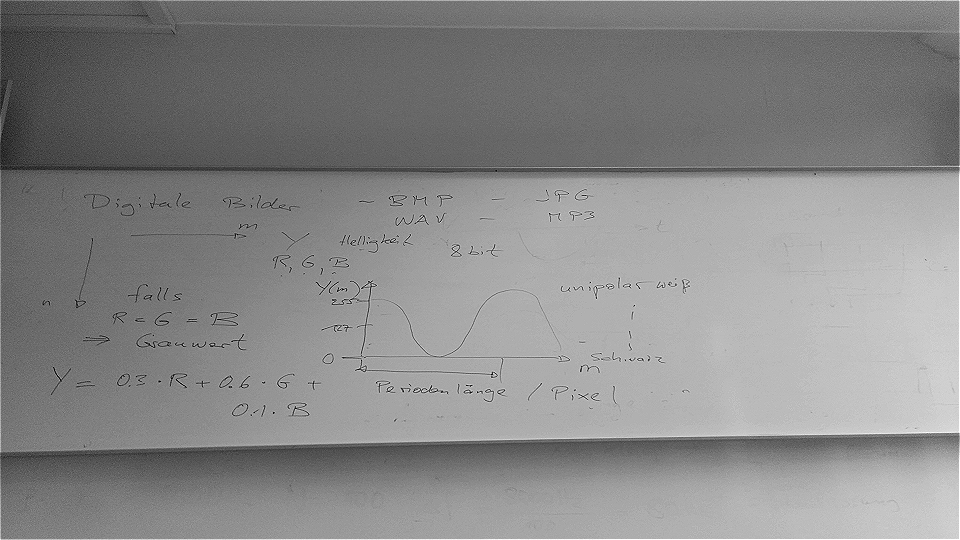 Digitale Bilder - BMP - JPG
WAV - MP3
m
Y Helligkeit 8 bit
R, G, B
n
falls
R = G = B
⇒ Grauwert
Y = 0.3 · R + 0.6 · G +
0.1 · B
Y(m)
255
127
0
m
Periodenlänge / Pixel
unipolar weiß
schwarz